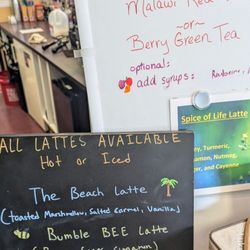 Malawi Red
~or~
Berry Green Tea
optional:
add syrups:
Spice of Life Latte
Turmeric,
Nutmeg,
and Cayenne
ALL LATTES AVAILABLE
Hot or Iced
The Beach Latte
(toasted Marshmallow, Salted Caramel, Vanilla)
Bumble BEE Latte